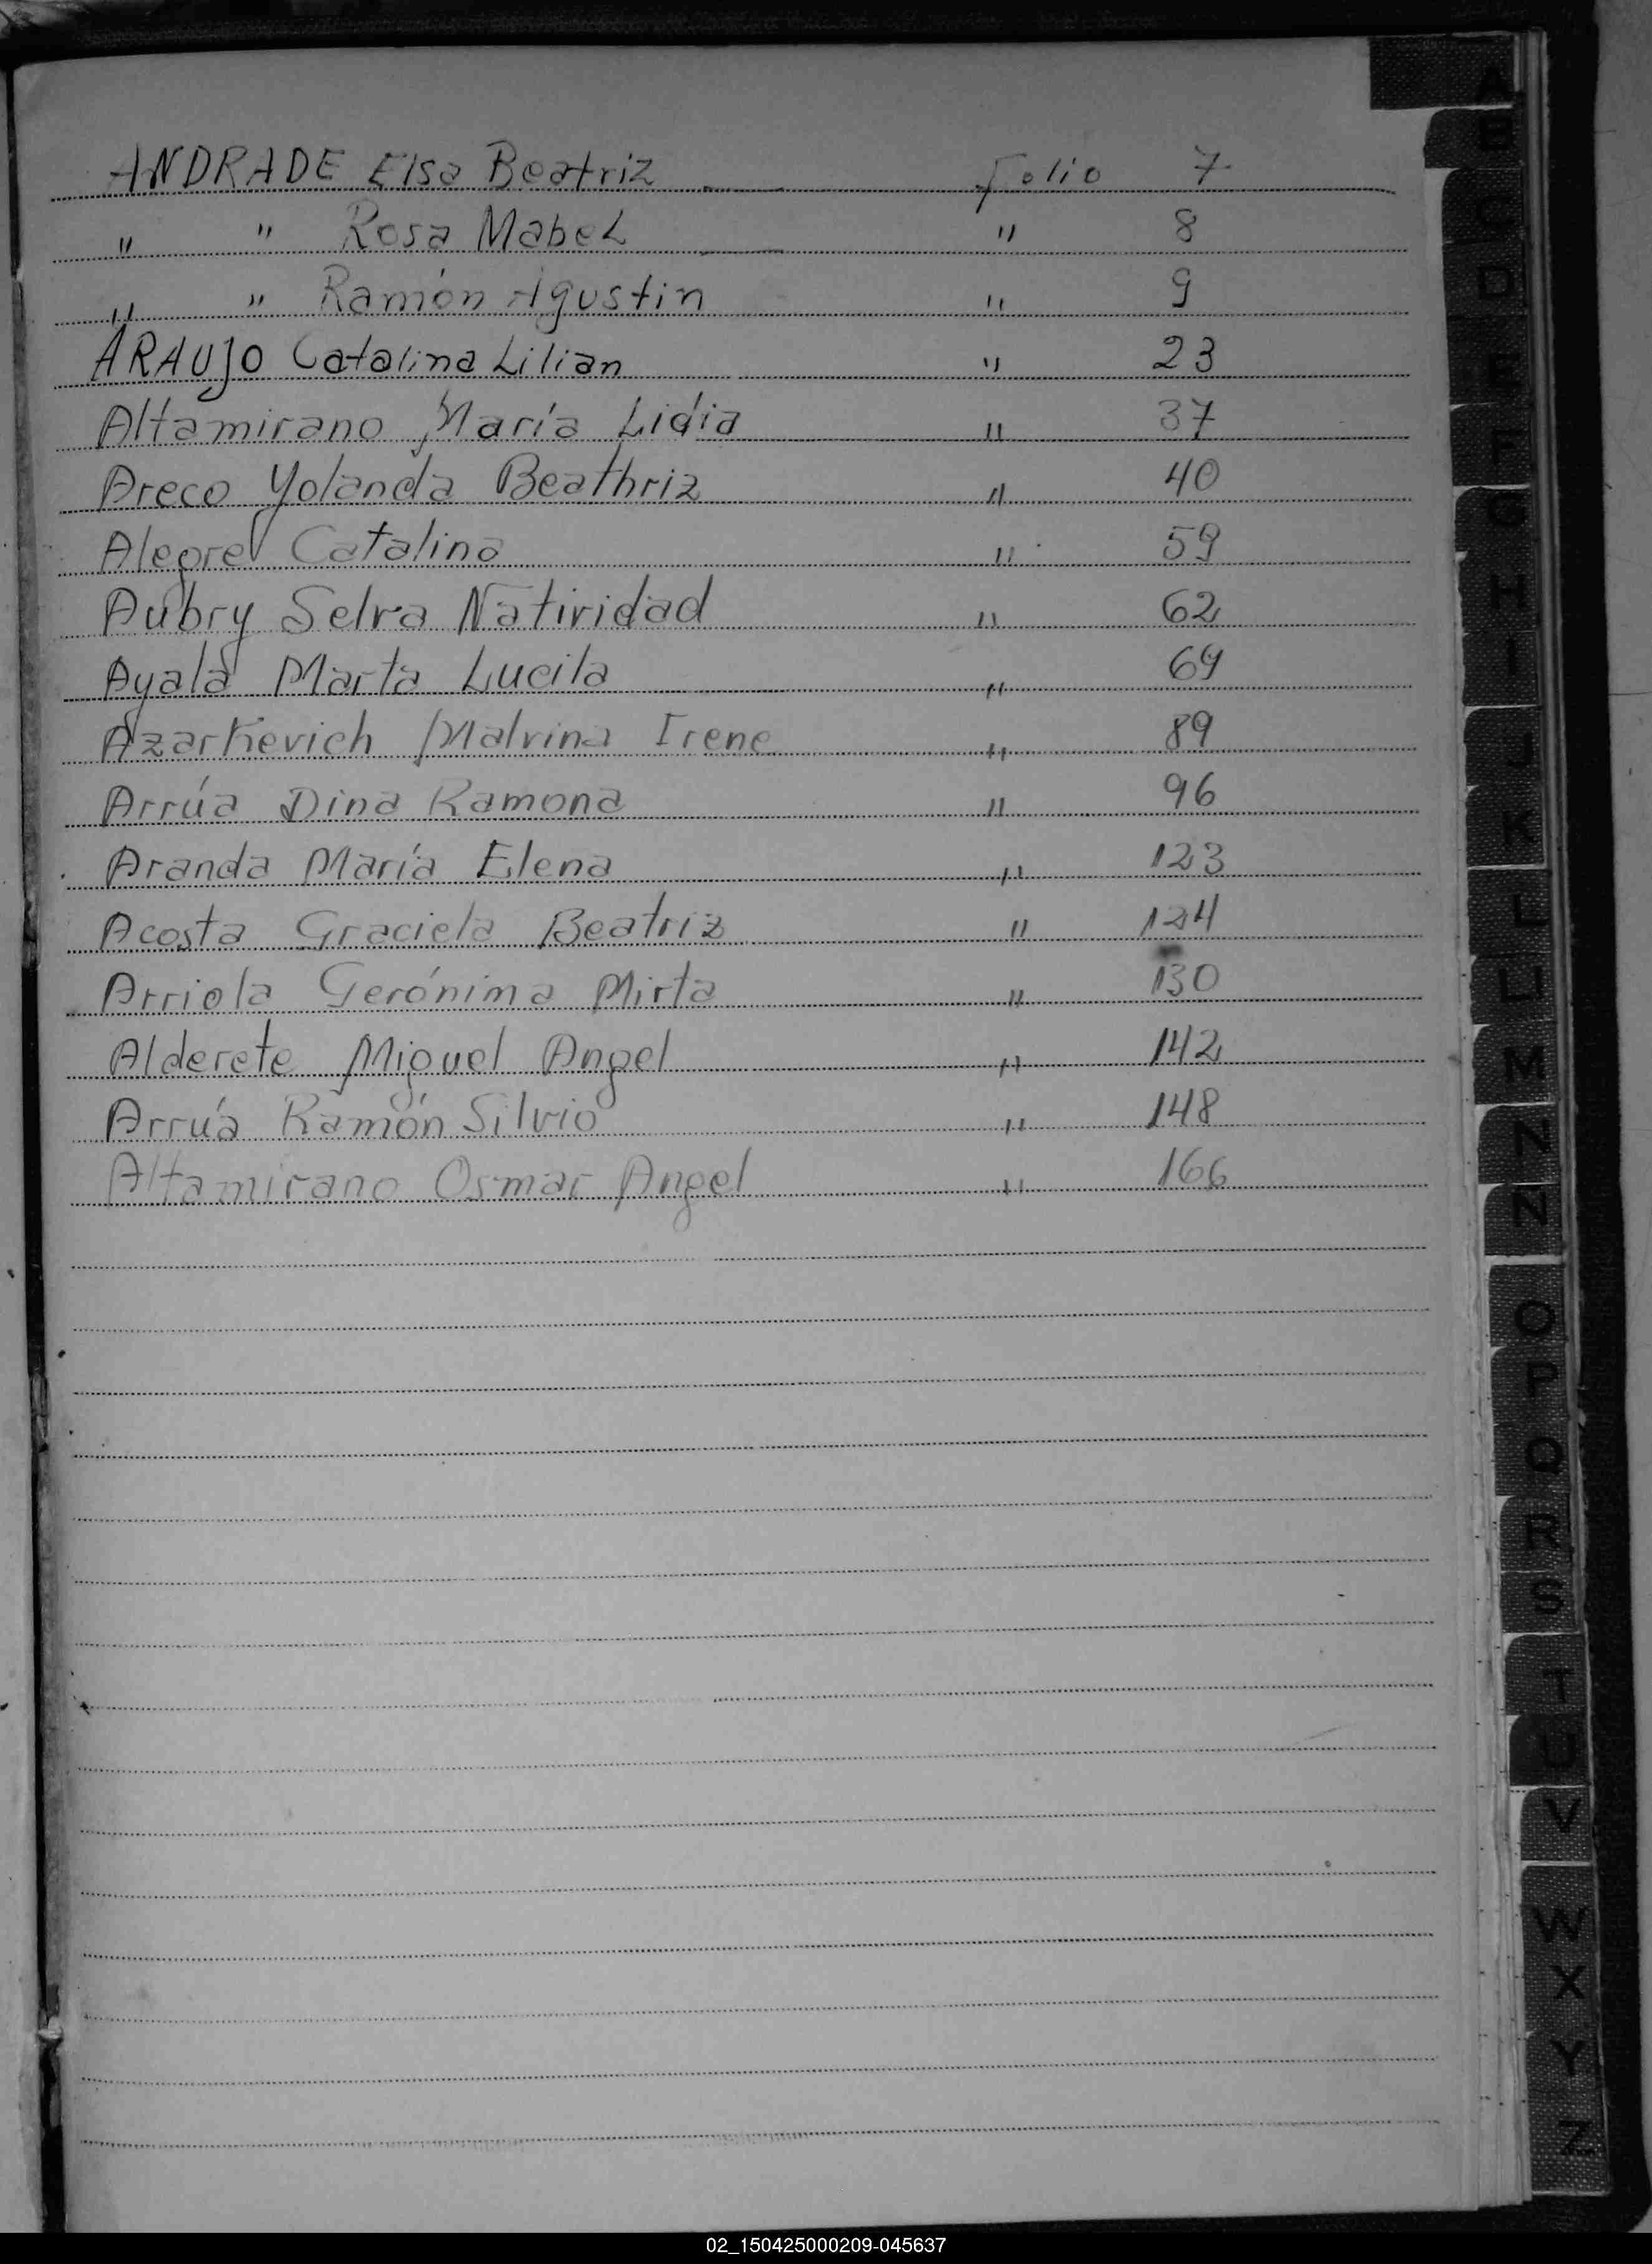 ANDRADE Elsa Beatriz Folio 7
" " Rosa Mabel " 8
" " Ramón Agustin " 9
ARAUJO Catalina Lilian " 23
Altamirano María Lidia " 37
Areco Yolanda Beathriz " 40
Alegre Catalina " 59
Aubry Selva Natividad " 62
Ayala Marta Lucila " 69
Azarkevich Malvina Irene " 89
Arrúa Dina Ramona " 96
Aranda María Elena " 123
Acosta Graciela Beatriz " 124
Arriola Gerónima Mirta " 130
Alderete Miguel Angel " 142
Arrúa Ramón Silvio " 148
Altamirano Osmar Angel " 166
A
B
C
D
E
F
G
H
I
J
K
L
LL
M
N
Ñ
O
P
Q
R
S
T
U
V
W
X
Y
Z
02_150425000209-045637